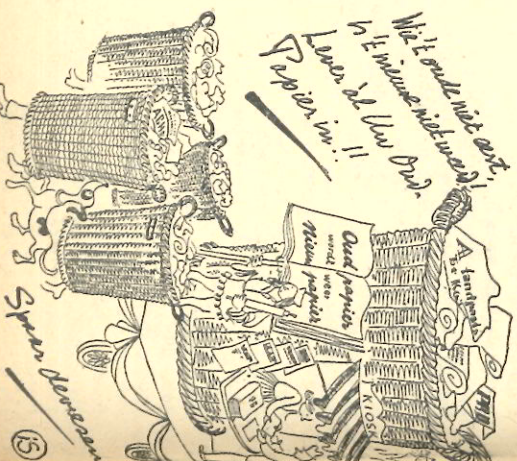 Wie't oude niet eert,
is 't nieuwe niet weerd!
Lever àl Uw Oud-
Papier in!!
Oud papier
wordt weer
Nieuw papier
KIOS
Spaar deviezen
15